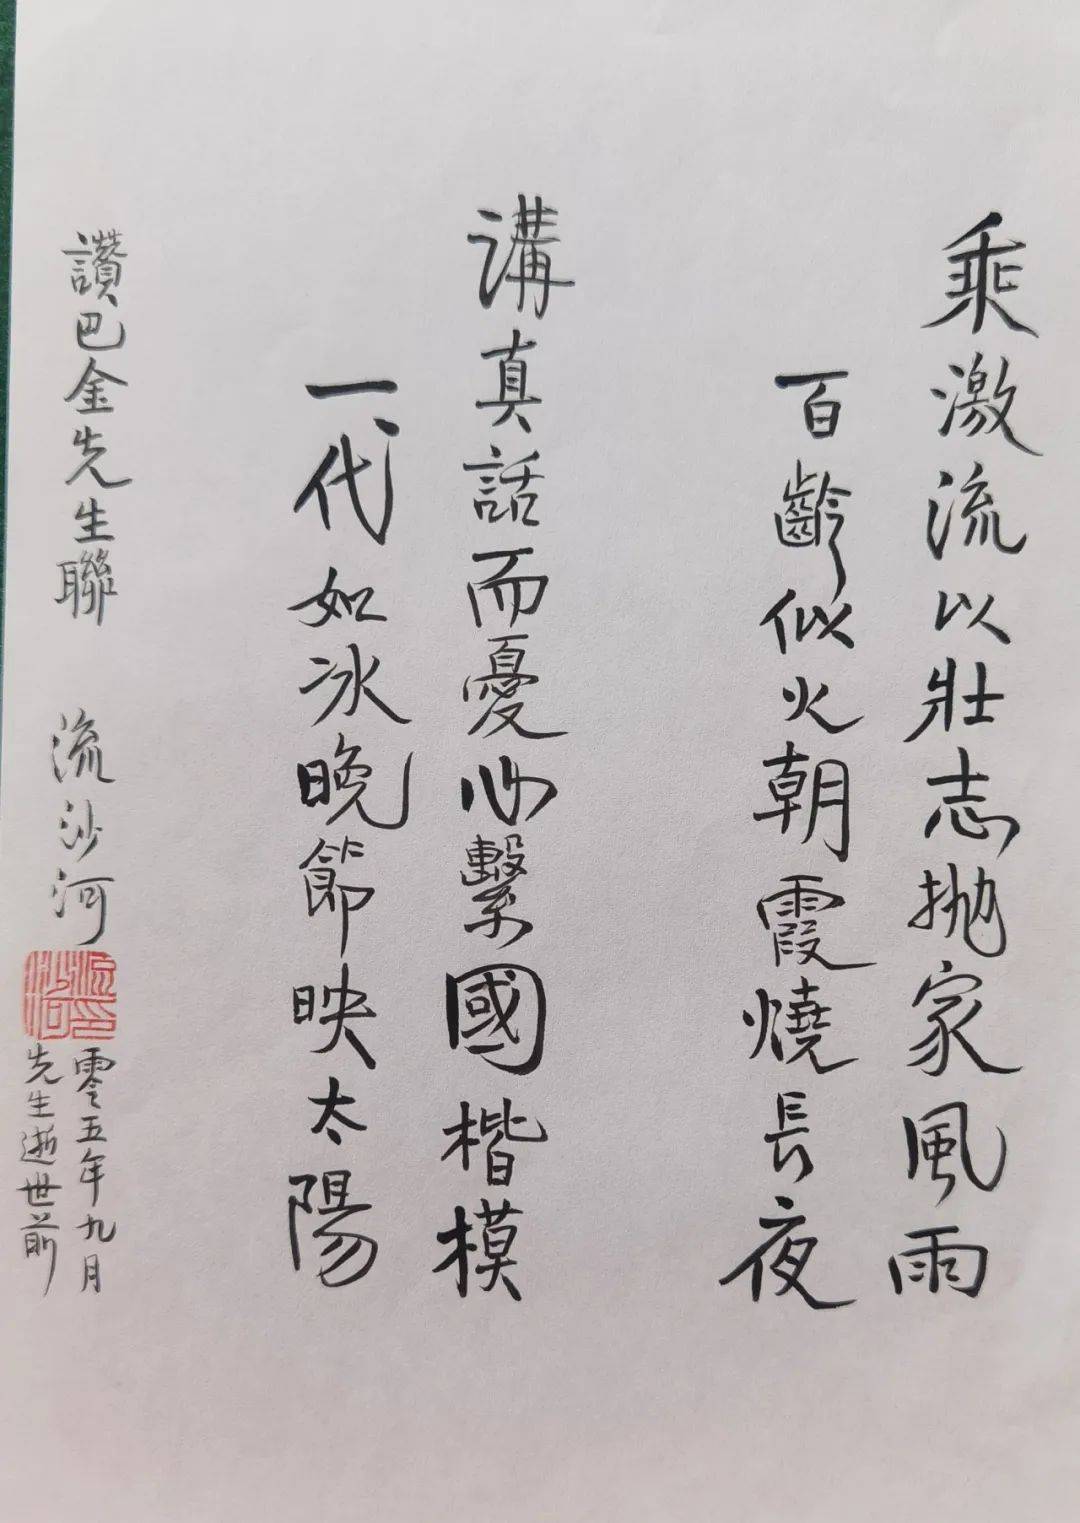 乘激流以壯志抛家風雨
百齡似火朝霞燒長夜
講真話而憂心繫國楷模
一代如冰晚節映太陽
讚巴金先生聯 流沙河
流沙河印
零五年九月
先生逝世前